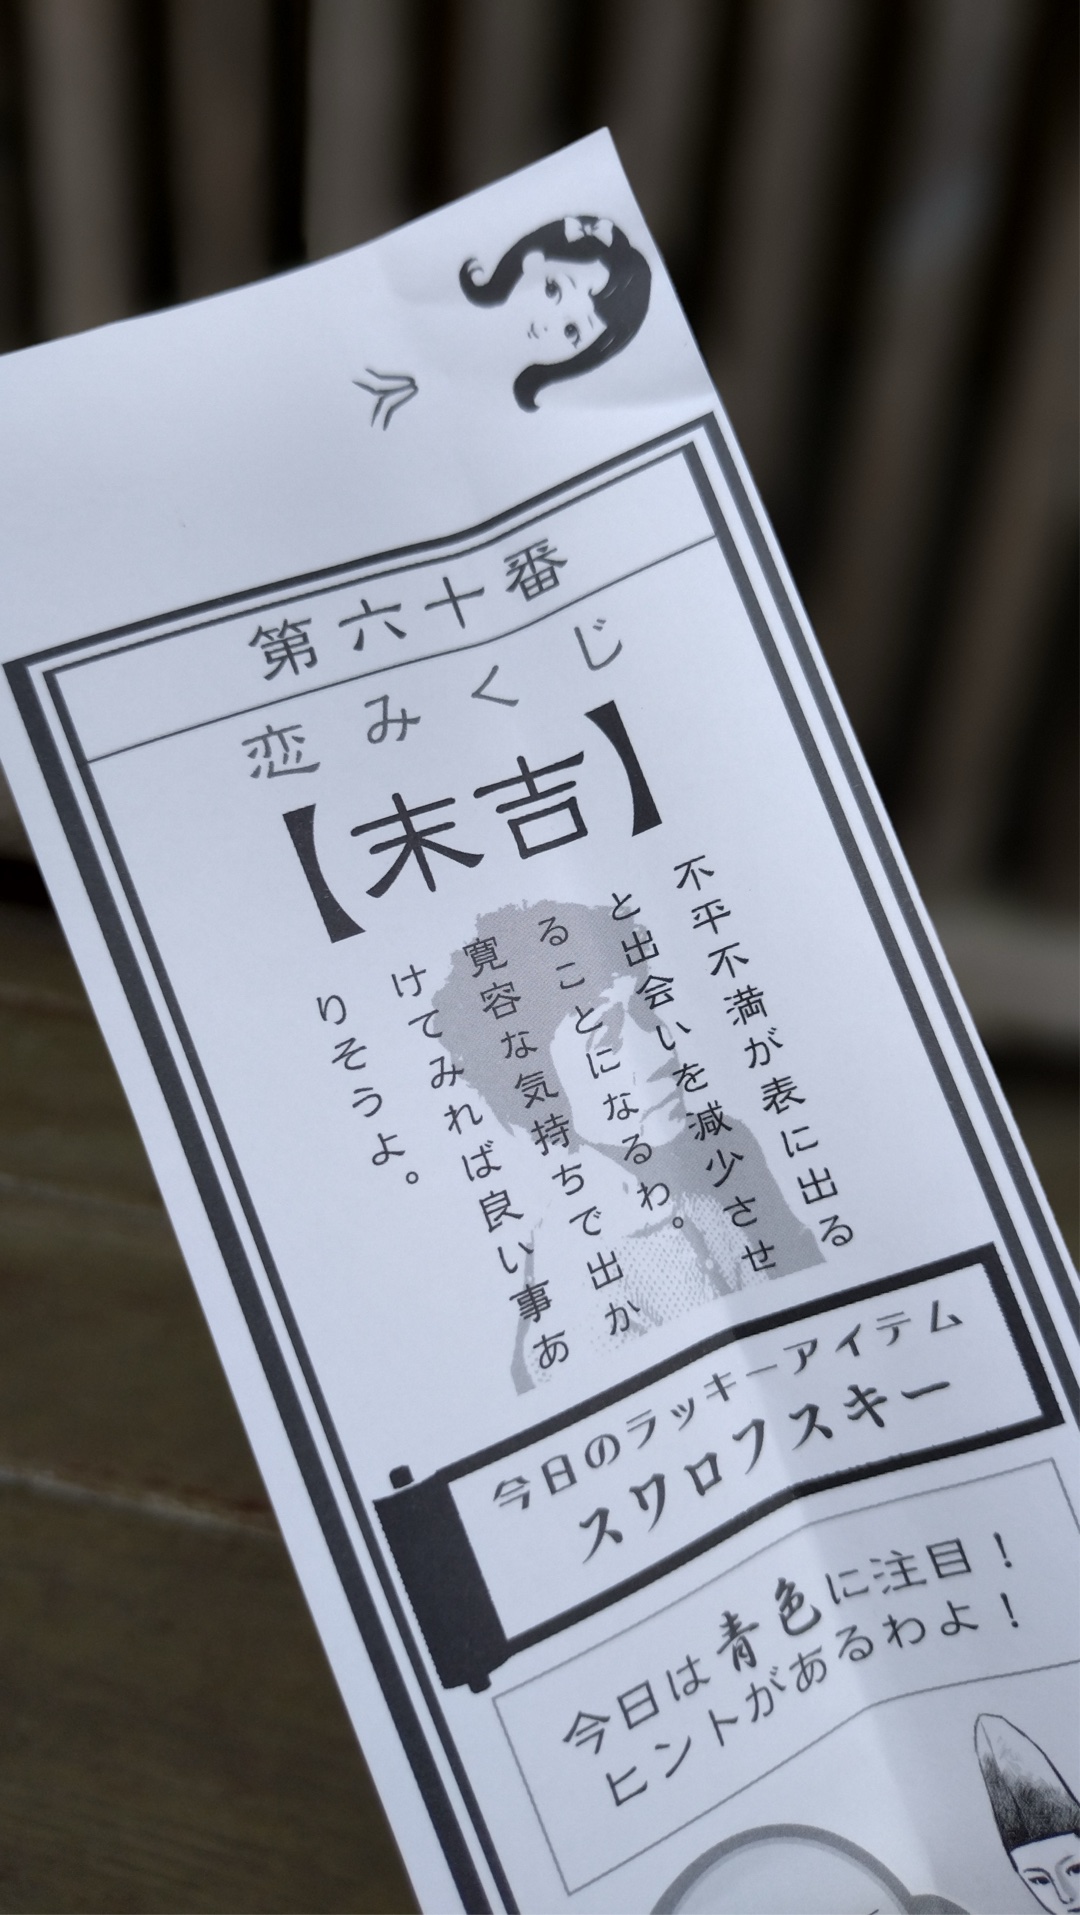 第六十番
恋みくじ
【末吉】
不平不満が表に出る
と出会いを減少させ
ることになるわ。
寛容な気持ちで出か
けてみれば良い事あ
りそうよ。
今日のラッキーアイテム
スワロフスキー
今日は青色に注目！
ヒントがあるわよ！